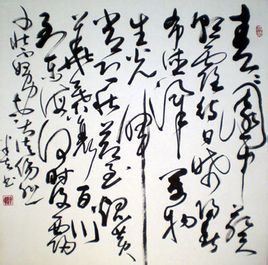 青青園中葵
朝露待日晞陽春
布德澤萬物
生光輝
常恐秋節至焜黃
華葉衰百川
東到海何時復西歸
少壯不努力老大徒傷悲
書